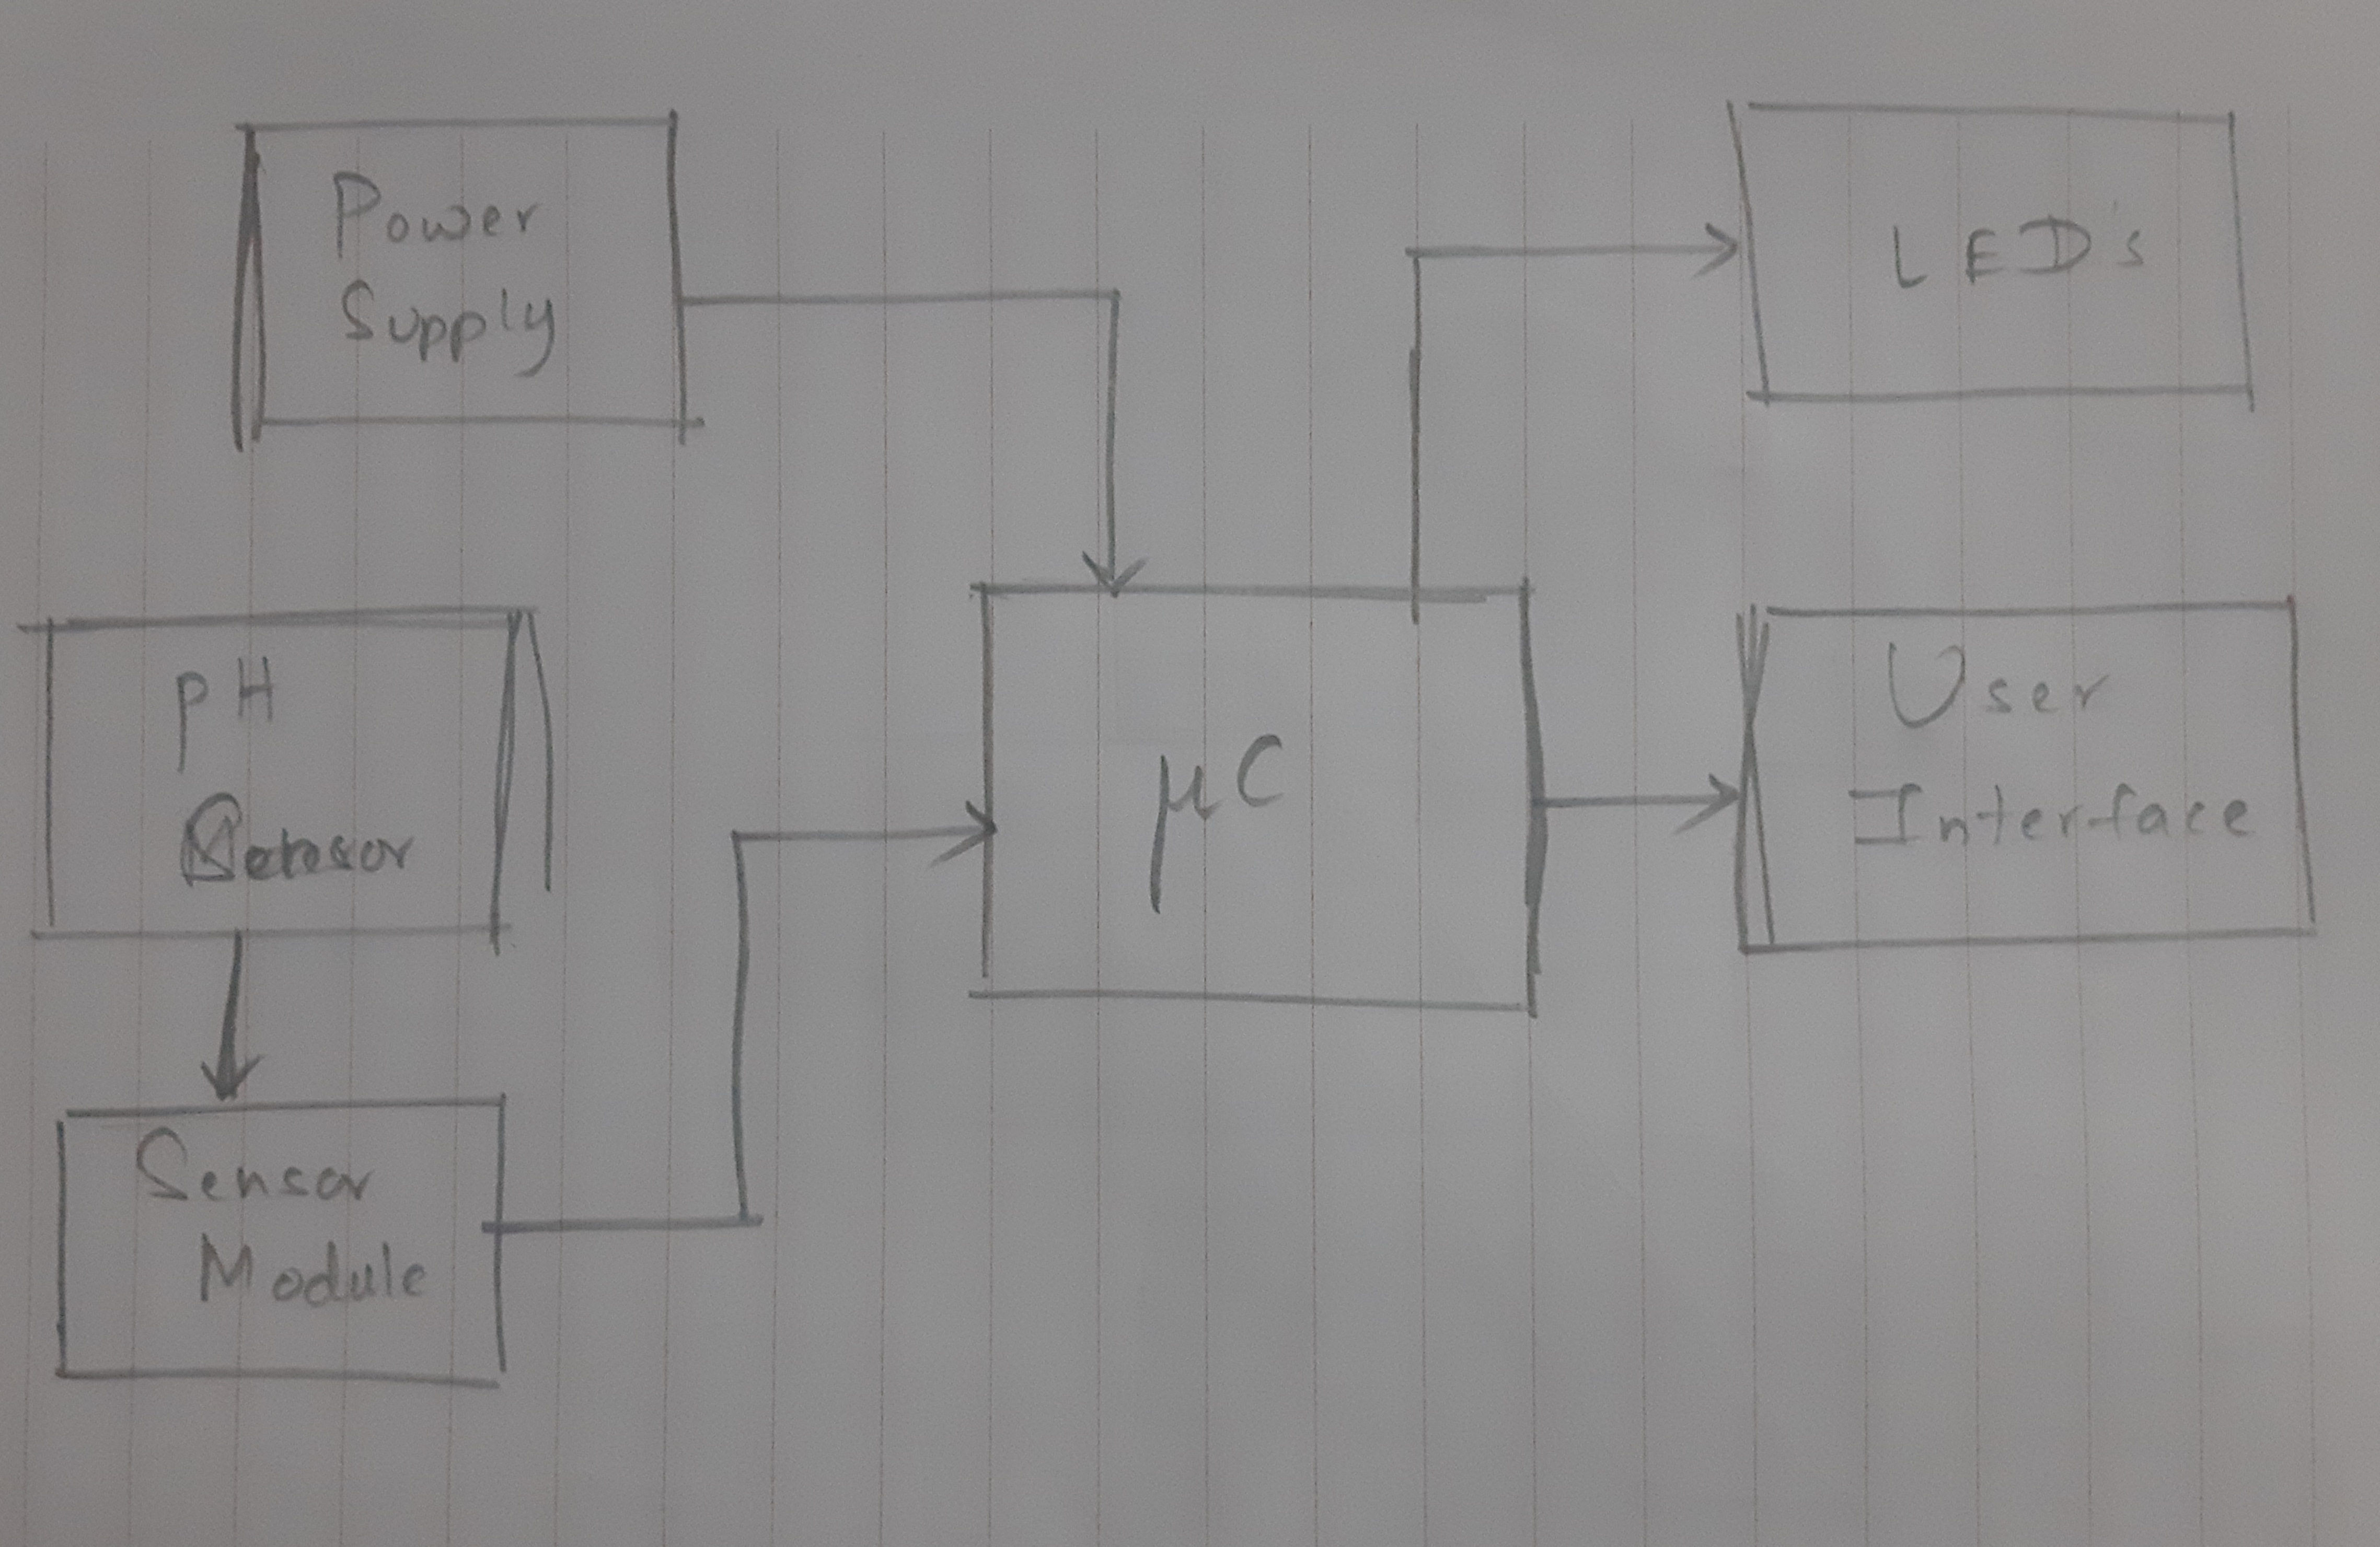 Power
Supply
LED's
pH
Sensor
μC
User
Interface
Sensor
Module